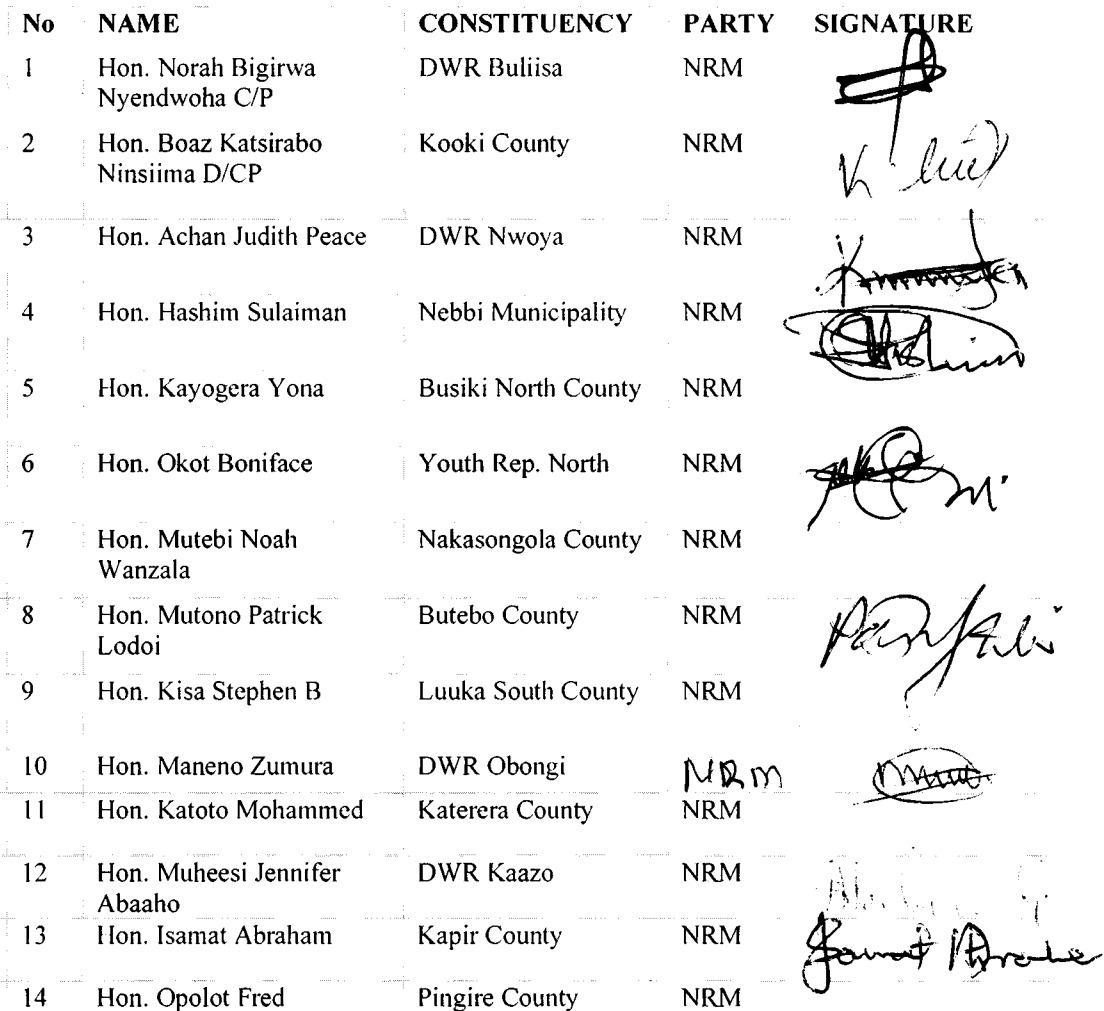 No NAME CONSTITUENCY PARTY SIGNATURE
1 Hon. Norah Bigirwa DWR Buliisa NRM
Nyendwoha C/P
2 Hon. Boaz Katsirabo Kooki County NRM
Ninsiima D/CP
3 Hon. Achan Judith Peace DWR Nwoya NRM
4 Hon. Hashim Sulaiman Nebbi Municipality NRM
5 Hon. Kayogera Yona Busiki North County NRM
6 Hon. Okot Boniface Youth Rep. North NRM
7 Hon. Mutebi Noah Nakasongola County NRM
Wanzala
8 Hon. Mutono Patrick Butebo County NRM
Lodoi
9 Hon. Kisa Stephen B Luuka South County NRM
10 Hon. Maneno Zumura DWR Obongi NRM
11 Hon. Katoto Mohammed Katerera County NRM
12 Hon. Muheesi Jennifer DWR Kaazo NRM
Abaaho
13 Hon. Isamat Abraham Kapir County NRM
14 Hon. Opolot Fred Pingire County NRM